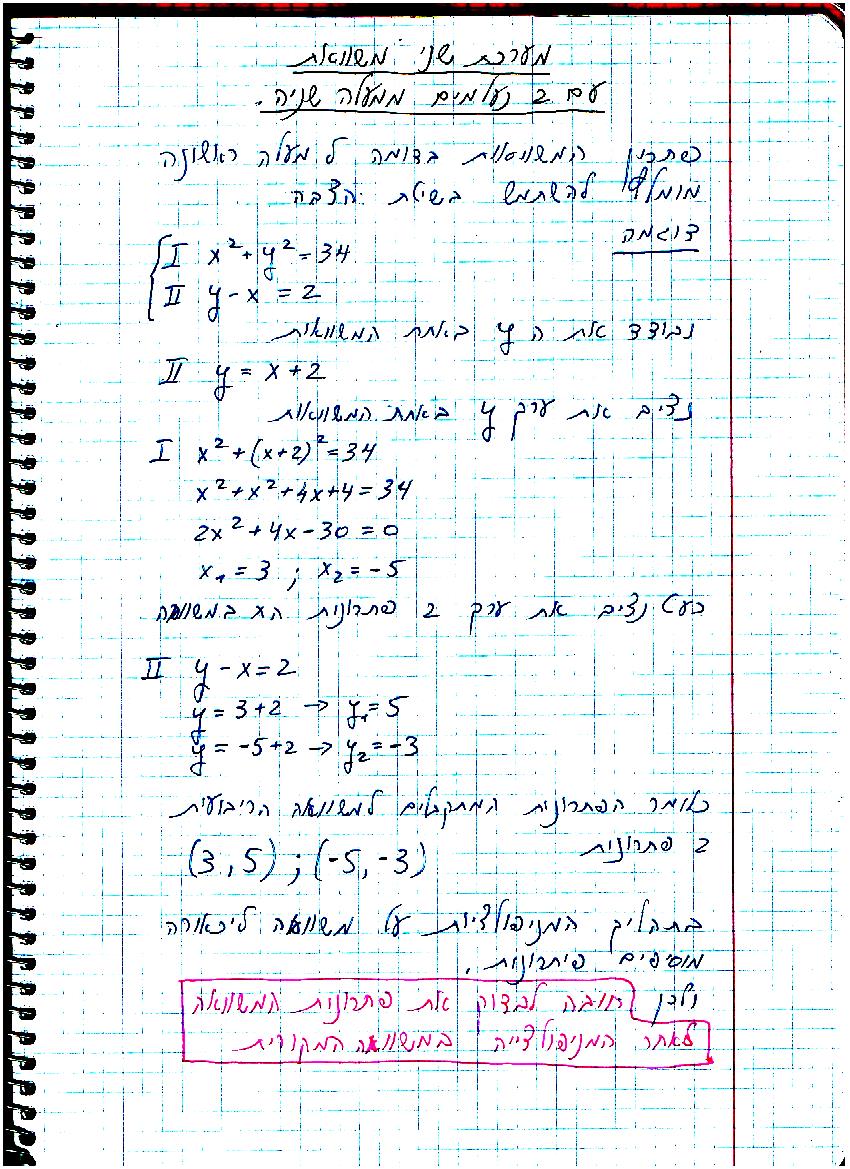 מערכת שני משוואות
עם 2 נעלמים ממעלה שניה.
פתרון המשוואות בדומה ל מעלה ראשונה
מומלץ להשתמש בשיטת הצבה
דוגמה
I x²+y²=34
II y-x=2
נבודד את ה y באחת המשוואות
II y=x+2
נציב את ערך y באחת המשוואות
I x²+(x+2)²=34
x²+x²+4x+4=34
2x²+4x-30=0
x₁=3 ; x₂=-5
כעת נציב את ערך 2 פתרונות הx במשוואה
II y-x=2
y=3+2 → y₁=5
y=-5+2 → y₂=-3
כלומר הפתרונות המתקבלים למשוואה הריבועית
2 פתרונות
(3,5) ; (-5,-3)
בתהליך המניפולציות על משוואה לכאורה
מוסיפים פיתרונות.
ולכן חובה לבדוק את פתרונות המשוואה
לאחר המניפולצייה במשוואה המקורית